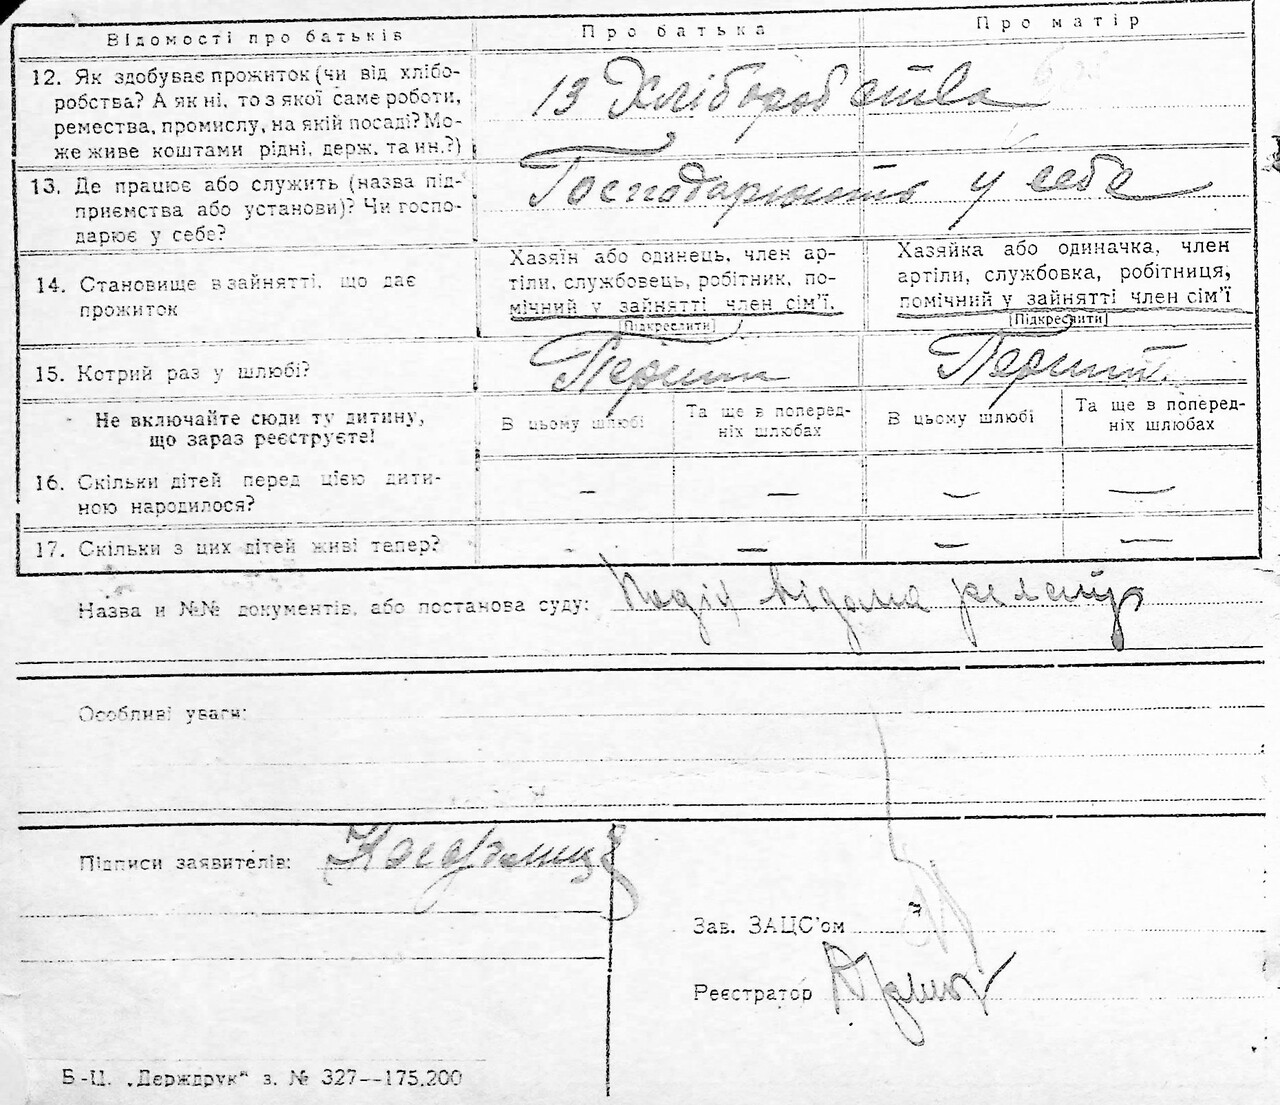 Відомості про батьків
Про батька
Про матір
12. Як здобуває прожиток (чи від хлібо-
робства? А як ні, то з якої саме роботи,
ремества, промислу, на якій посаді? Мо-
же живе коштами рідні, держ. та ин.?)
із Хліборобства
13. Де працює або служить (назва під-
приємства або установи)? Чи госпо-
дарює у себе?
Господарюють у себе
14. Становище в зайнятті, що дає
прожиток
Хазяїн або одинець, член ар-
тіли, службовець, робітник, по-
мічний у зайнятті член сім'ї.
[Підкреслити]
Хазяйка або одиначка, член
артіли, службовка, робітниця,
помічний у зайнятті член сім'ї
[Підкреслити]
15. Котрий раз у шлюбі?
Перший
Перший
Не включайте сюди ту дитину,
що зараз реєструєте!
В цьому шлюбі
Та ще в поперед-
ніх шлюбах
В цьому шлюбі
Та ще в поперед-
ніх шлюбах
16. Скільки дітей перед цією дити-
ною народилося?
— — — —
17. Скільки з цих дітей живі тепер?
- — — —
Назва и №№ документів, або постанова суду: Подія відома
Особливі уваги:
Підписи заявителів:
Зав. ЗАЦС'ом
Реєстратор
Б-Ц. „Держдрук" з. № 327—175.200